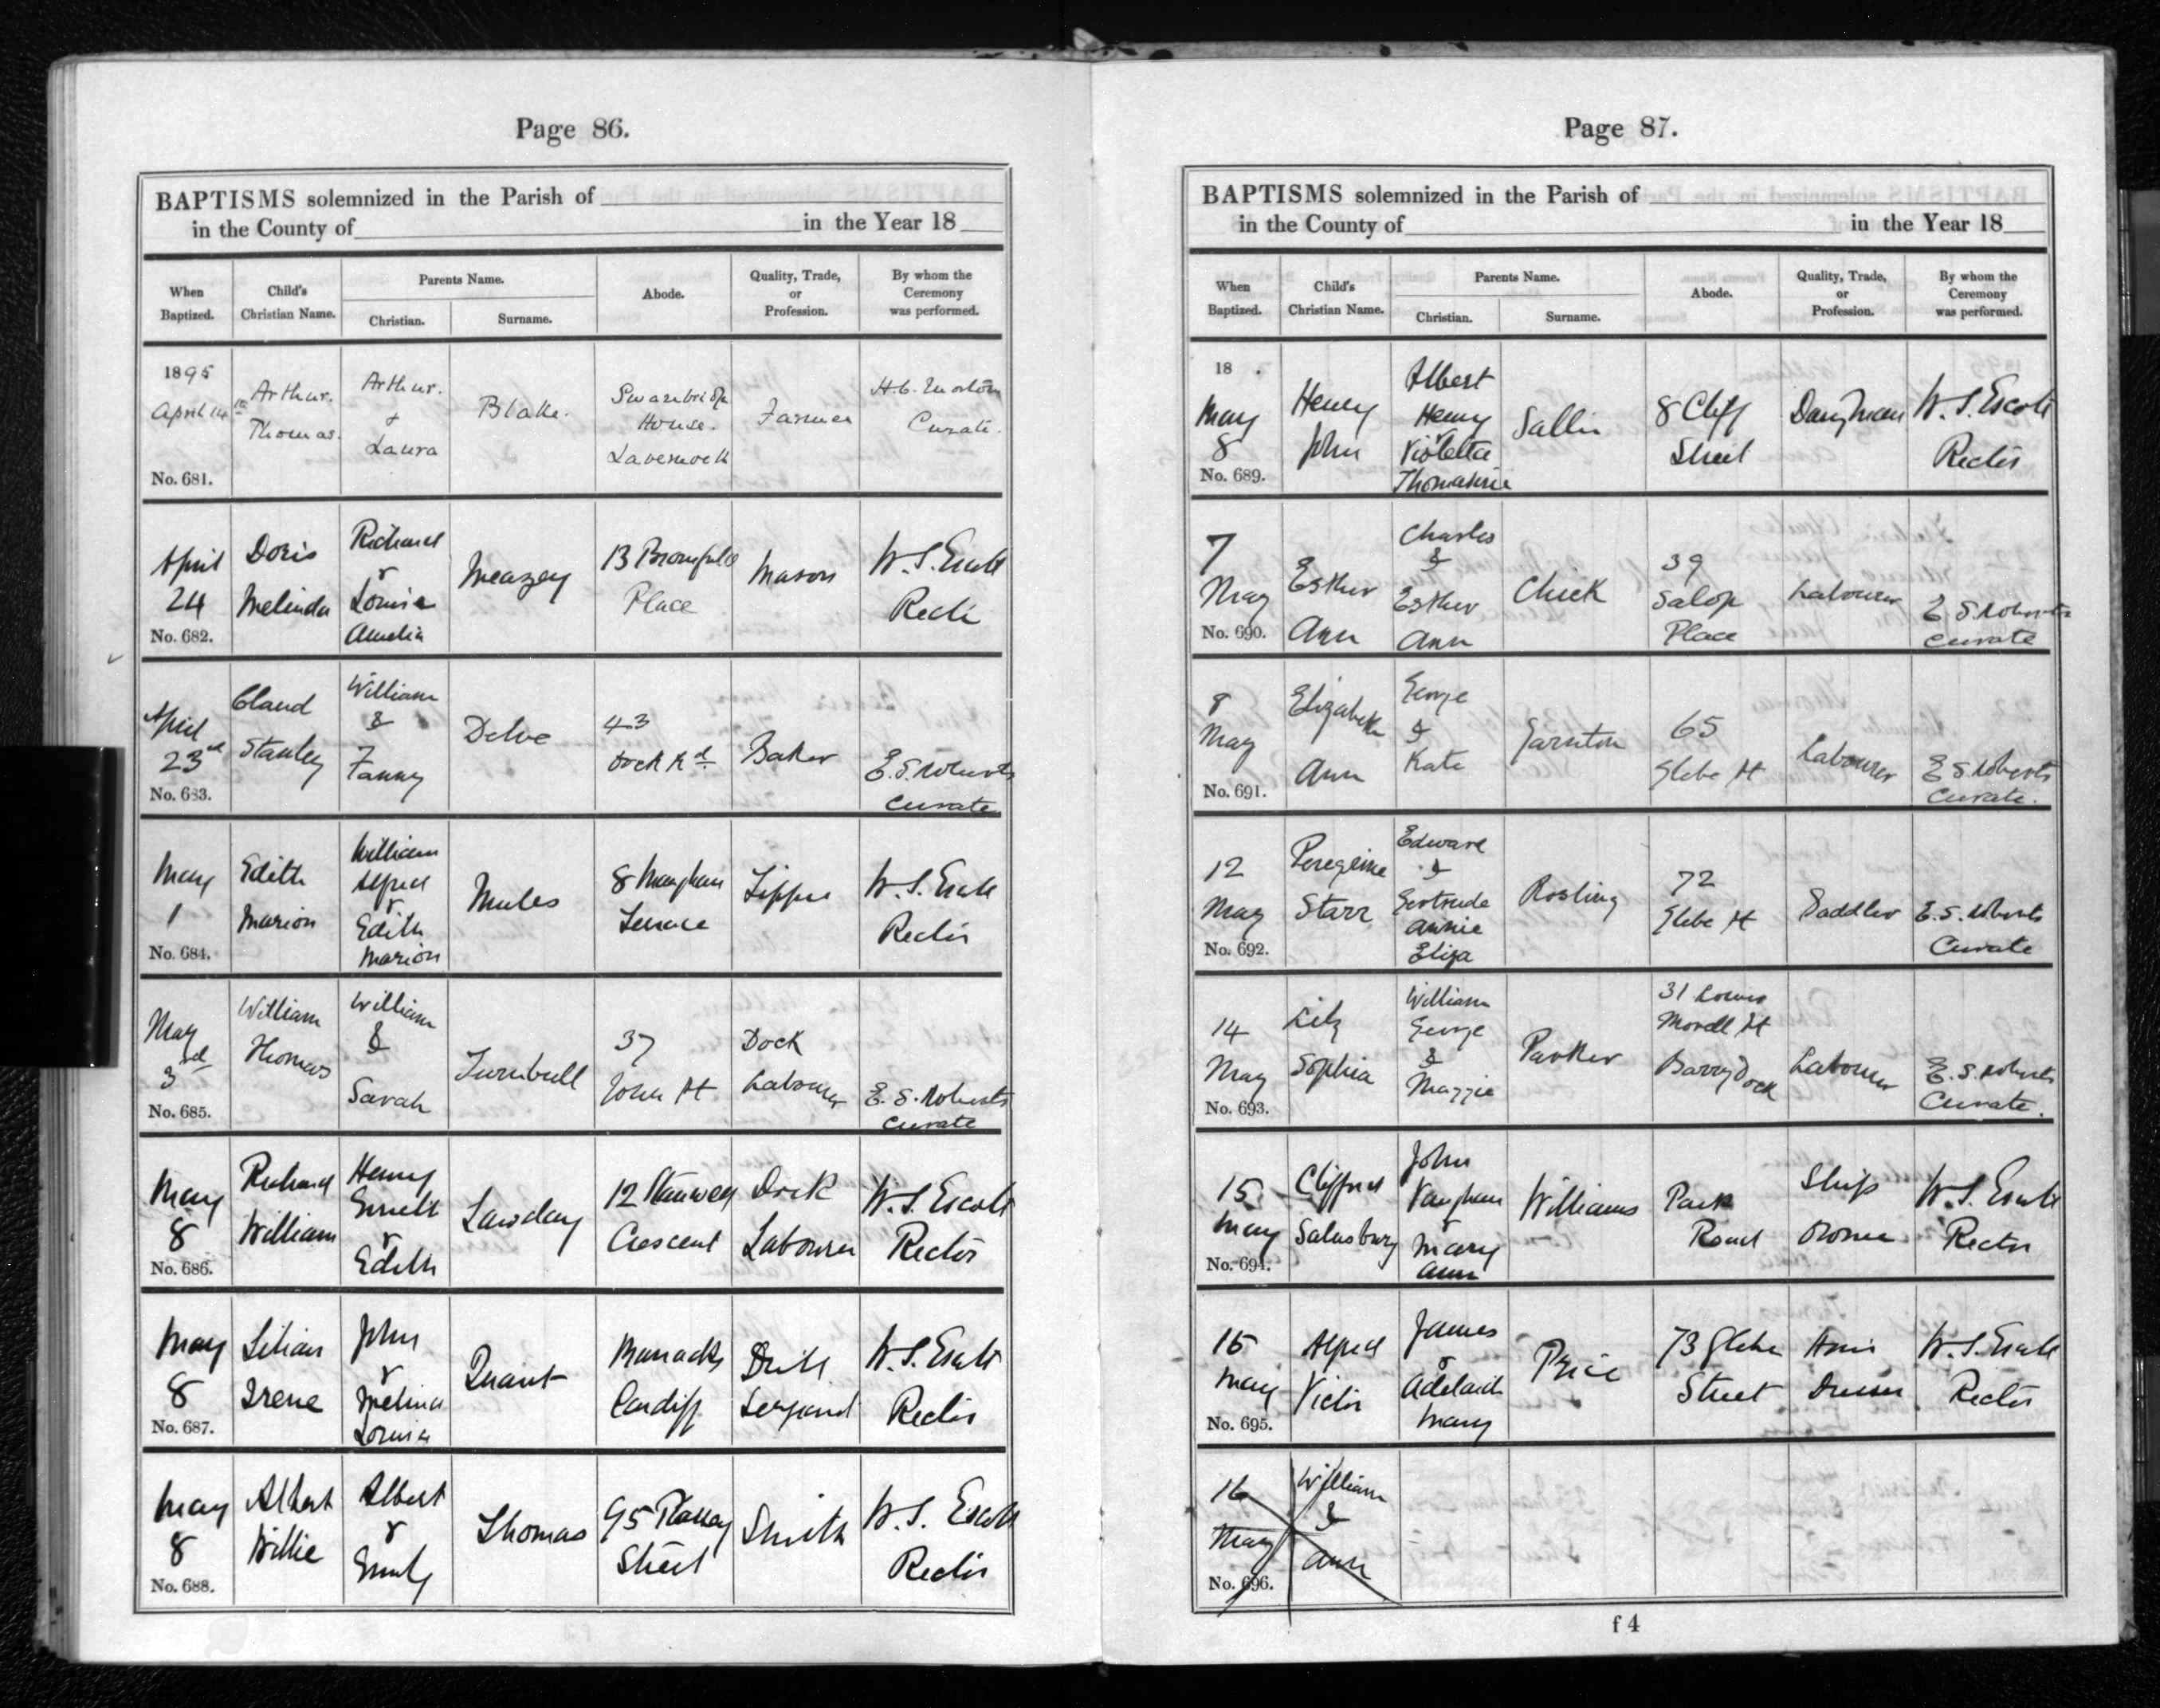 Page 86.
BAPTISMS solemnized in the Parish of
in the County of in the Year 18
When Baptized. Child's Christian Name. Parents Name. Christian. Surname. Abode. Quality, Trade, or Profession. By whom the Ceremony was performed.
1895
April 14th Arthur. Thomas. Arthur. + Laura Blake. Swanbridge House. Lavernock Farmer H. C. Curate.
No. 681.
April 24 Doris Melinda Richard & Louisa Amelia Meazey 13 Bromfield Place Mason W. S. Escott Rector
No. 682.
April 23rd Claud Stanley William & Fanny Delve 43 Dock Rd. Baker E. S. Roberts Curate
No. 683.
May 1 Edith Marion William Alfred & Edith Marion Mules 8 Maughan Terrace Tipper W. S. Escott Rector
No. 684.
May 3rd William Thomas William & Sarah Turnbull 37 John St Dock Labourer E. S. Roberts Curate
No. 685.
May 8 Richard William Henry Ernest & Edith Lawday 12 Stanwell Crescent Dock Labourer W. S. Escott Rector
No. 686.
May 8 Lilian Irene John & Melina Louisa Quant Barracks Cardiff Drill Sergeant W. S. Escott Rector
No. 687.
May 8 Albert Willie Albert & Emily Thomas 95 Plassey Street Smith W. S. Escott Rector
No. 688.
Page 87.
BAPTISMS solemnized in the Parish of
in the County of in the Year 18
When Baptized. Child's Christian Name. Parents Name. Christian. Surname. Abode. Quality, Trade, or Profession. By whom the Ceremony was performed.
18 .
May 8 Henry John Albert Henry & Violetta Thomasine 8 Cliff Street Dairyman W. S. Escott Rector
No. 689.
7 May Esther Ann Charles & Esther Ann Chick 39 Salop Place Labourer E S Roberts Curate
No. 690.
8 May Elizabeth Ann George & Kate Garnton 65 Glebe St Labourer E S Roberts Curate.
No. 691.
12 May Peregrine Starr Edward & Gertrude Annie Eliza Rosling 72 Glebe St Saddler E. S. Roberts Curate
No. 692.
14 May Lily Sophia William George & Maggie Parker 31 Lower Morell St Barry Dock Labourer E. S. Roberts Curate.
No. 693.
15 May Clifford Salusbury John Vaughan & Mary Ann Williams Park Road Ship Owner W. S. Escott Rector
No. 694.
15 May Alfred Victor James & Adelaide Mary Price 73 Glebe Street Dresser W. S. Escott Rector
No. 695.
16 May William & Ann
No. 696.
f 4